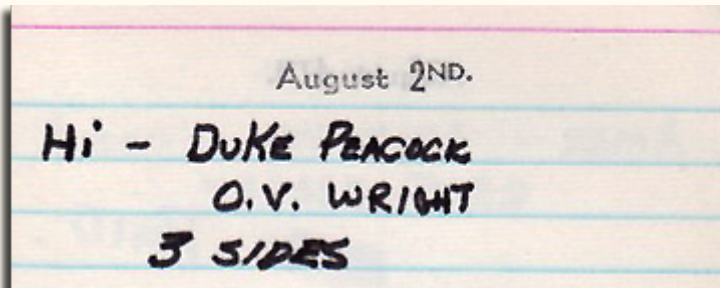 August 2ND.
Hi - DUKE PEACOCK
O.V. WRIGHT
3 SIDES